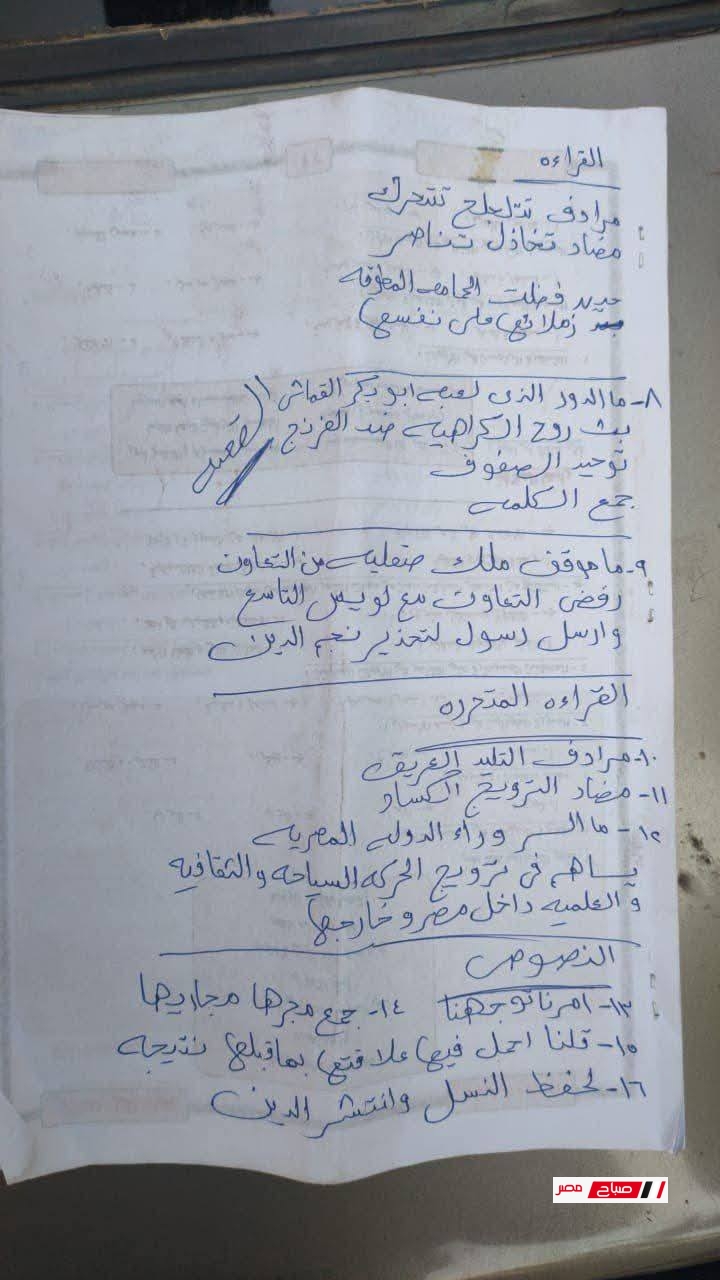 القراءه
مرادف تتلجلج تتحرك
مضاد تخاذل تناصر
حيث فضلت الحمامه المطوقه
زملائها على نفسها
٨- ما الدور الذى لعبه ابو بكر القماش
القصه
بث روح الكراهيه ضد الفرنج
توحيد الصفوف
جمع الكلمه
٩- ما موقف ملك صقليه من التعاون
رفض التعاون مع لويس التاسع
وارسل رسول لتحذير نجم الدين
القراءه المتحرره
١٠- مرادف التليد العريق
١١- مضاد الترويج الكساد
١٢- ما السر وراء الدوله المصريه
يساهم فى ترويج الحركه السياحه والثقافيه
والعلميه داخل مصر وخارجها
النصوص
١٣- امرنا توجهنا ١٤- جمع مجرها مجاريها
١٥- قلنا احمل فيها علاقتها بما قبلها نتيجه
١٦- لحفظ النسل وانتشر الدين
صباح مصر